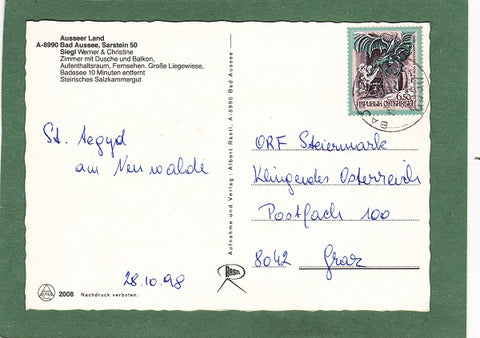 Ausseer Land
A-8990 Bad Aussee, Sarstein 50
Siegl Werner & Christine
Zimmer mit Dusche und Balkon,
Aufenthaltsraum, Fernsehen. Große Liegewiese,
Badesee 10 Minuten entfernt
Steirisches Salzkammergut
St. Aegyd
am Neuwalde
28.10.98
2008 Nachdruck verboten.
Aufnahme und Verlag: Albert Rastl, A-8990 Bad Aussee
6.50
REPUBLIK ÖSTERREICH
ORF Steiermark
Klingendes Österreich
Postfach 100
8042 Graz